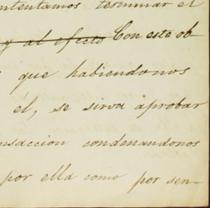 ntentamos terminar el
y al efecto Con este ob
que habiendonos
él, se sirva aprobar
nsaccion condenandonos
por ella como por sen-